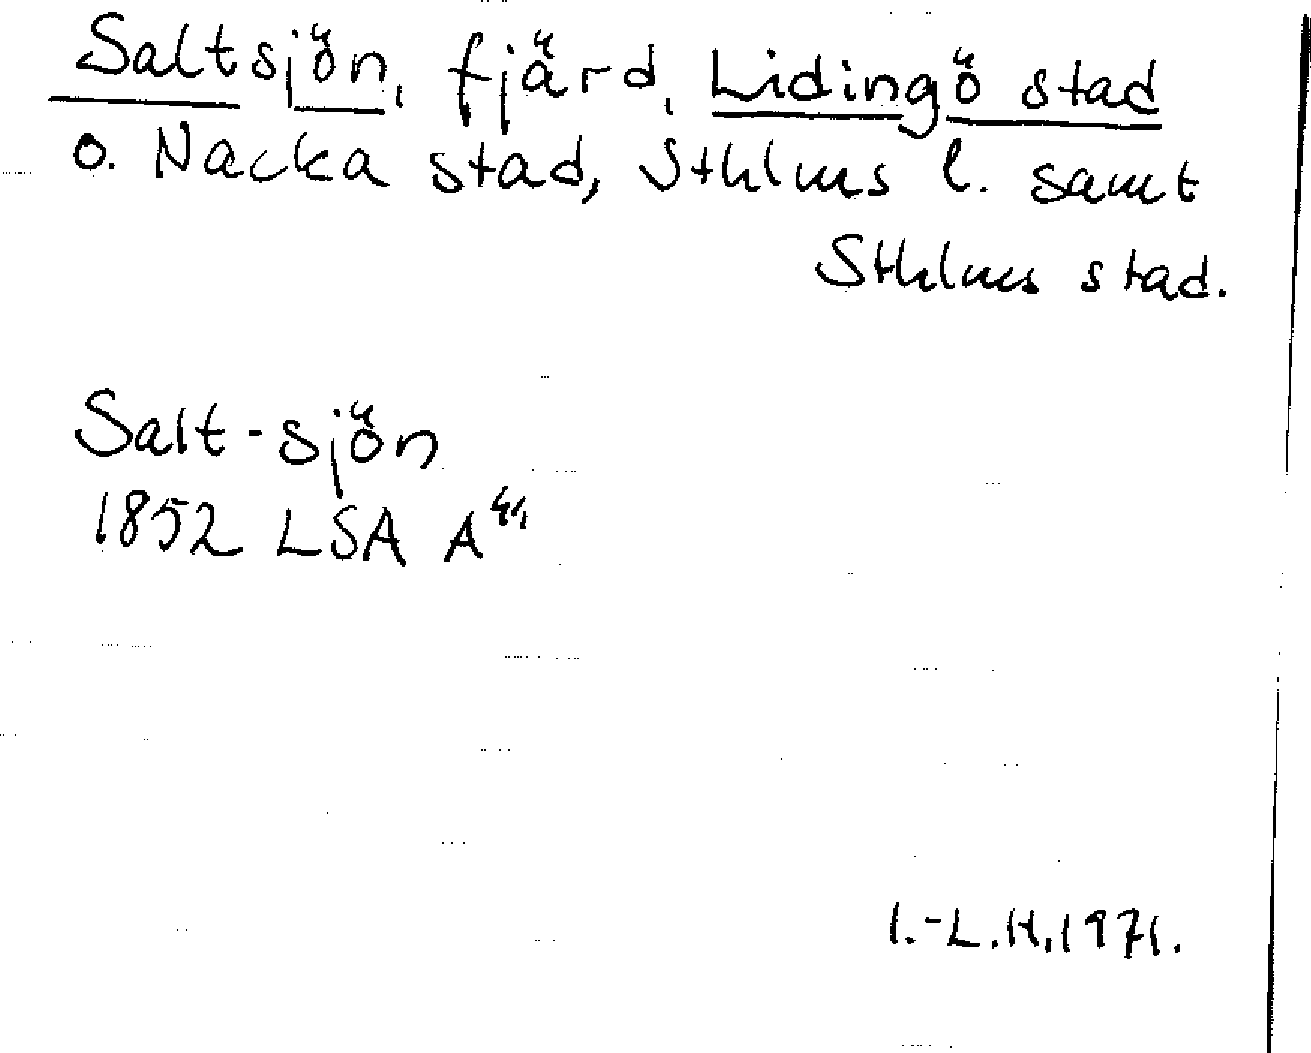 Saltsjön, fjärd, Lidingö stad
o. Nacka stad, Sthlms l. samt
Sthlms stad.
Salt-sjön
1852 LSA A
I.-L.H. 1971.